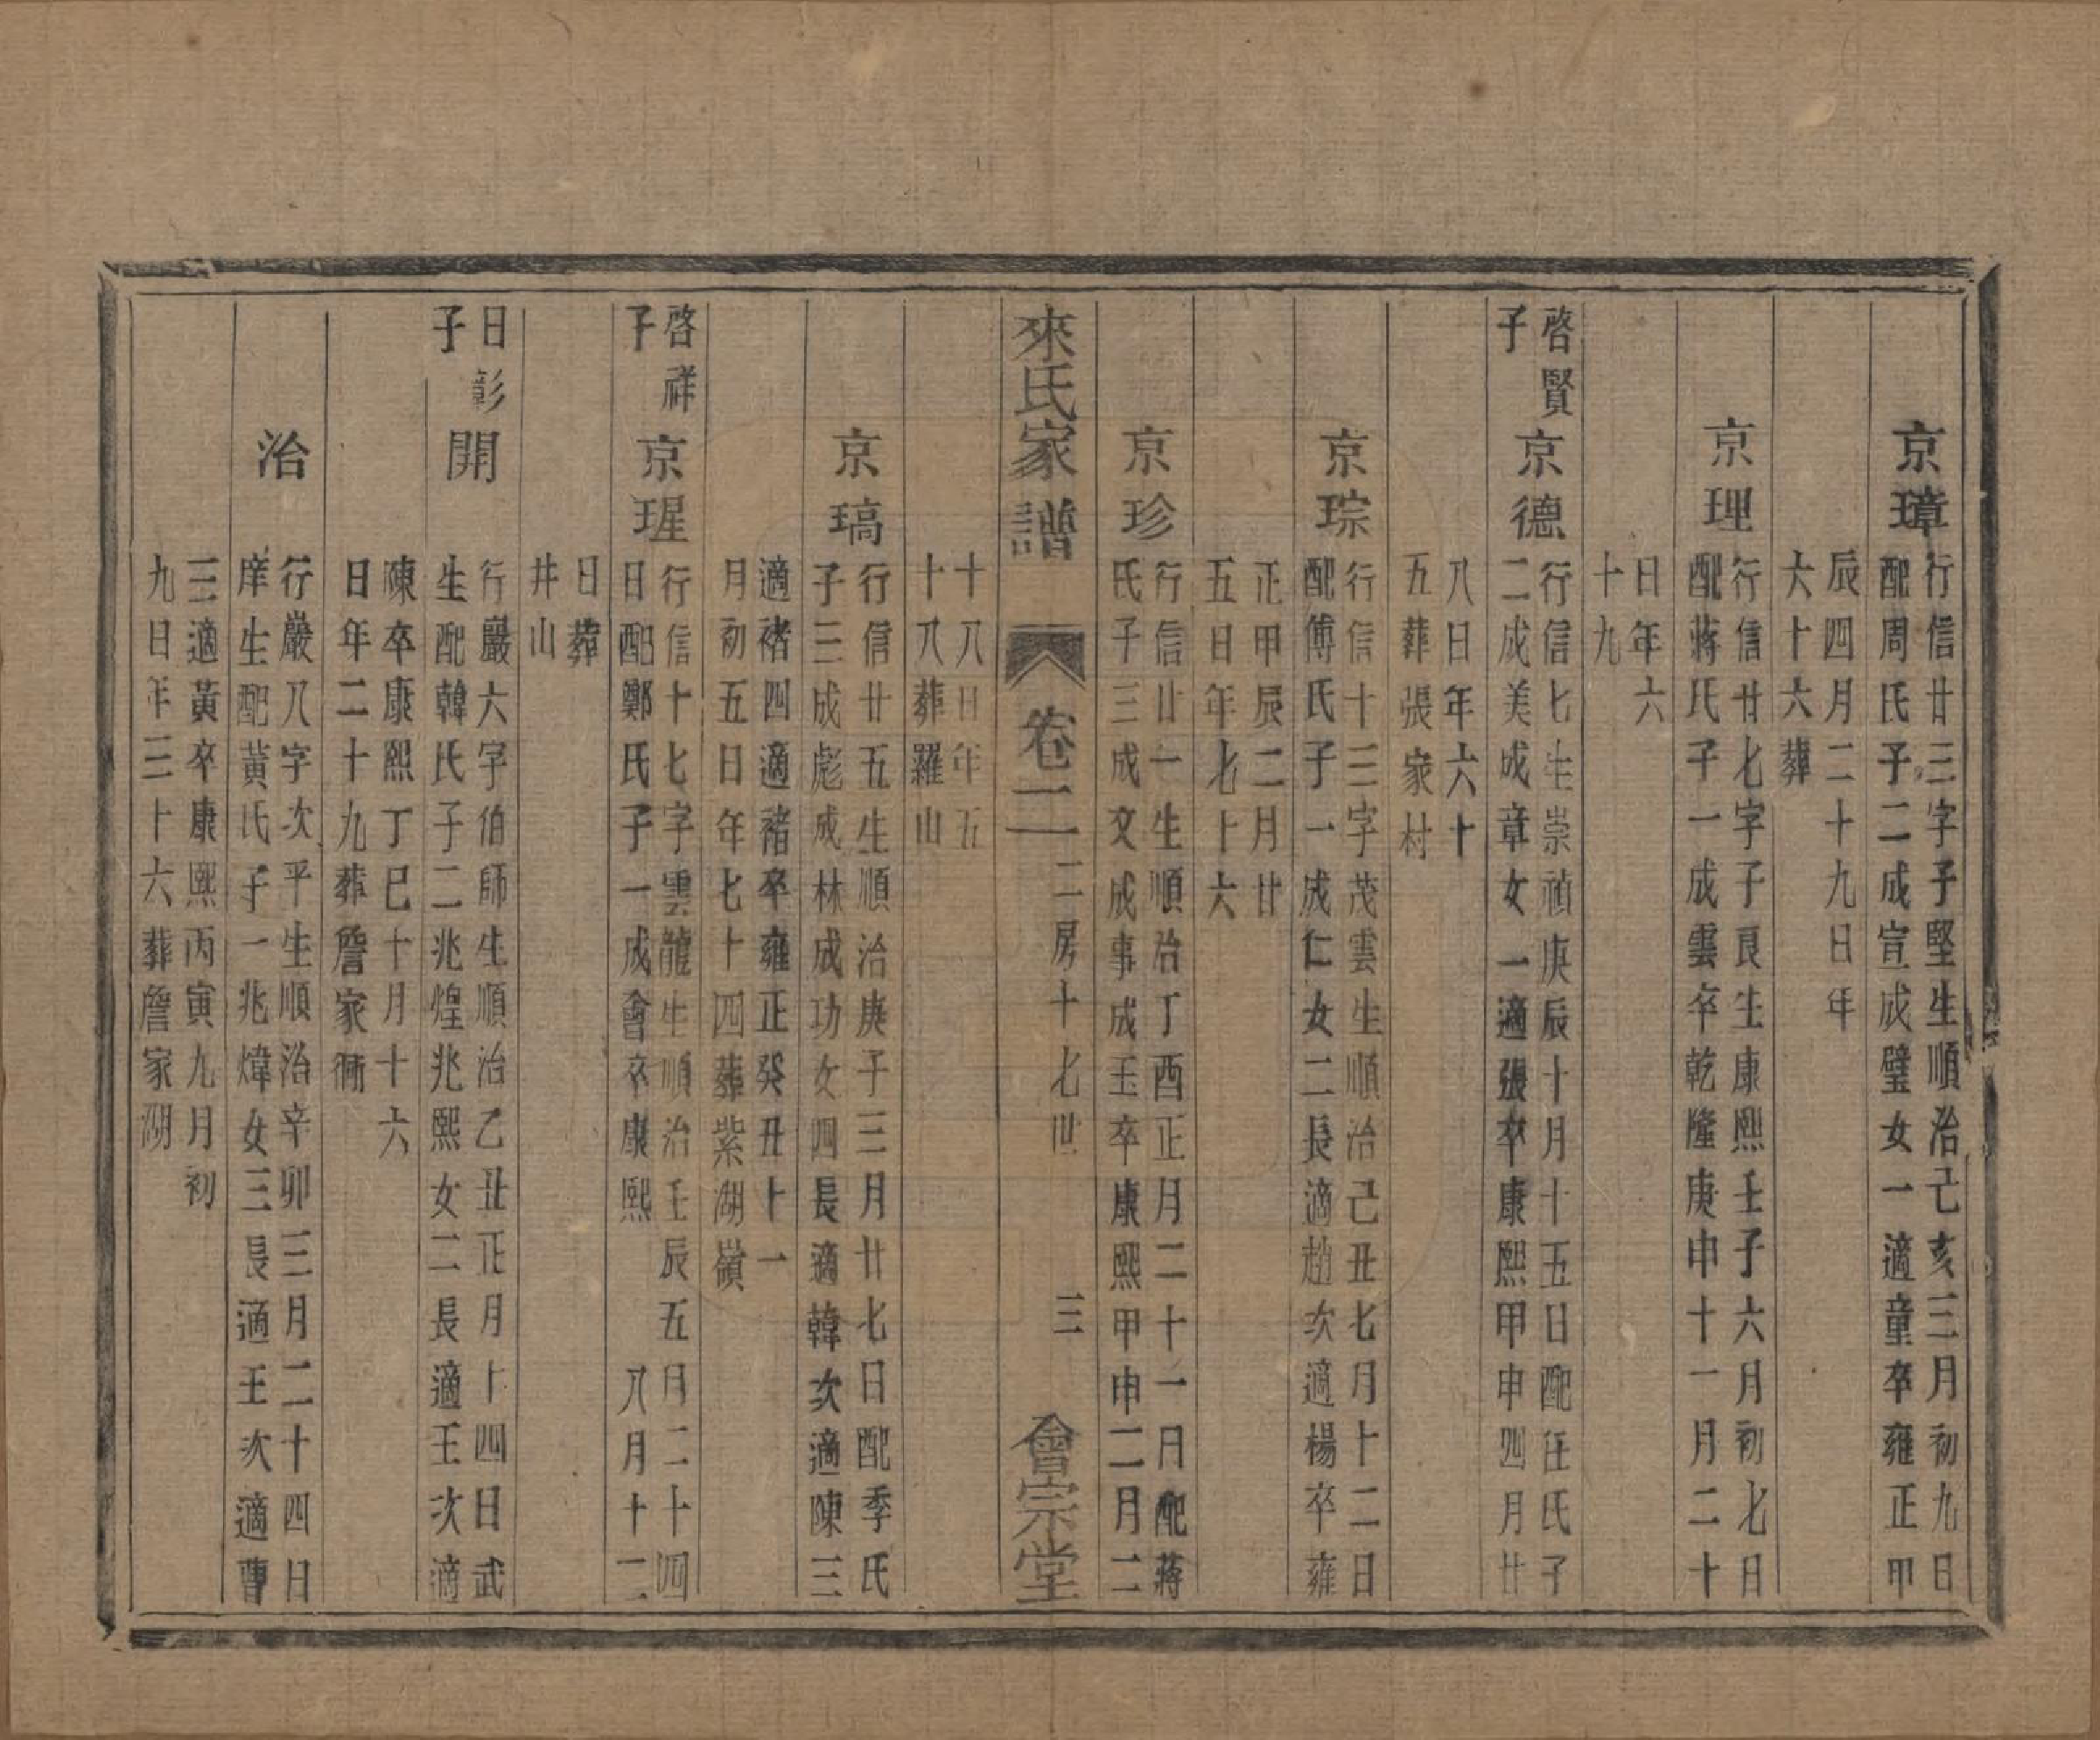 京璋
行信廿三字子堅生順治己亥三月初九日
配周氏子二成宣成璧女一適童卒雍正甲
辰四月二十九日年
六十六葬
京理
行信廿七字子良生康熙壬子六月初七日
配蔣氏子一成雲卒乾隆庚申十一月二十
日年六
十九
啓賢
子
京德
行信七生崇禎庚辰十月十五日配汪氏子
二成美成章女一適張卒康熙甲申四月廿
八日年六十
五葬張家村
京琮
行信十三字茂雲生順治己丑七月十二日
配傅氏子一成仁女二長適趙次適楊卒雍
正甲辰二月廿
五日年七十六
京珍
行信廿一生順治丁酉正月二十一日配蔣
氏子三成文成事成玉卒康熙甲申二月二
來氏家譜
卷二
二房十七世
三
會宗堂
十八日年五
十八葬羅山
京瑀
行信廿五生順治庚子三月廿七日配季氏
子三成彪成林成功女四長適韓次適陳三
適褚四適褚卒雍正癸丑十一
月初五日年七十四葬紫湖嶺
啓祥
子
京瑆
行信十七字雲龍生順治壬辰五月二十四
日配鄭氏子一成會卒康熙
八月十二
日葬
井山
日彰
子
開
行巖六字伯師生順治乙丑正月十四日武
生配韓氏子二兆煌兆熙女二長適王次適
陳卒康熙丁巳十月十六
日年二十九葬詹家衕
治
行巖八字次平生順治辛卯三月二十四日
庠生配黃氏子一兆煒女三長適王次適曹
三適黃卒康熙丙寅九月初
九日年三十六葬詹家湖